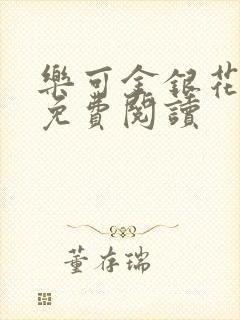 樂可金銀花
免費閱讀
董存瑞